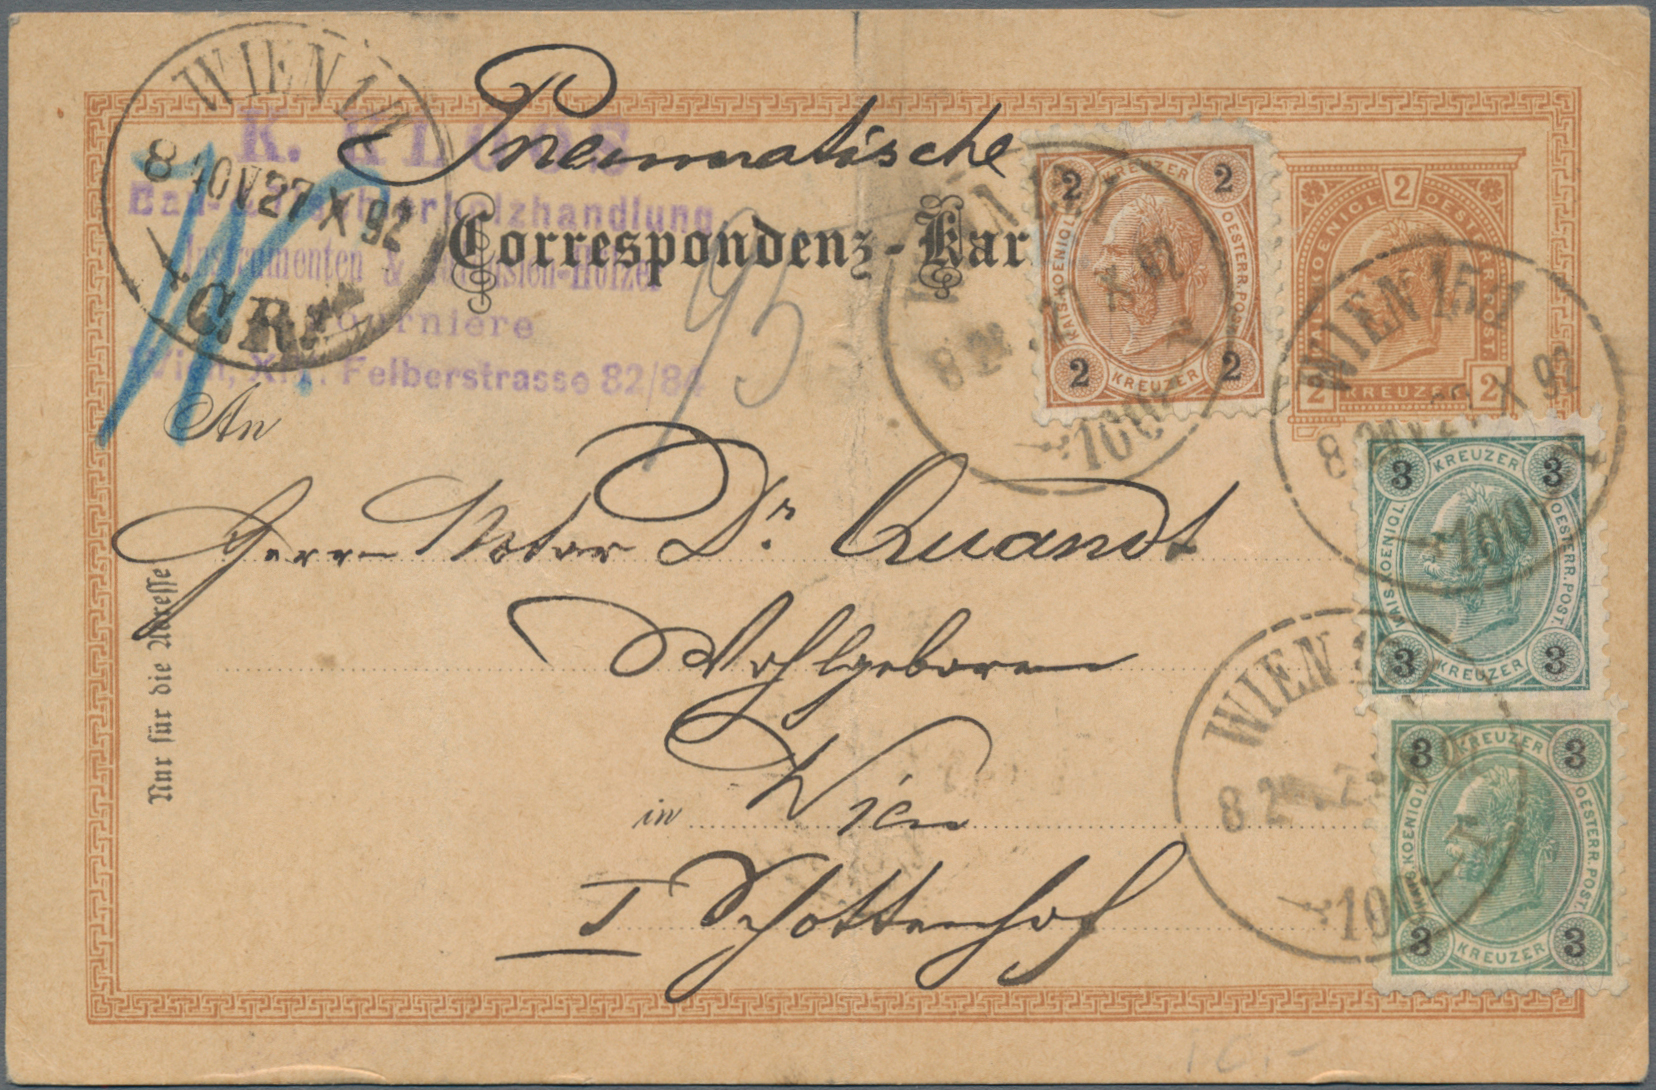 Pneumatische
Correspondenz-Kar
WIEN 1/1
8 40 V 27 X 92
K. KLOOS
holzhandlung
Instrumenten & -Hölzer
Wien, Felberstrasse 82/84
95
An
Herrn Notar Dr. Quandt
Wohlgeboren
in Wien
I Schottenhof
Nur für die Adresse
2 2
KREUZER
KAIS. KOENIGL.
OESTERR. POST.
2 KREUZER 2
2
KAIS. KOENIGL. OESTERR. POST.
2 KREUZER 2
WIEN
8 X 92
100
WIEN 15/1
8 X 92
100
3 KREUZER 3
KAIS. KOENIGL. OESTERR. POST.
3 KREUZER 3
WIEN
8
3 KREUZER 3
KAIS. KOENIGL. OESTERR. POST.
3 KREUZER 3
10.-